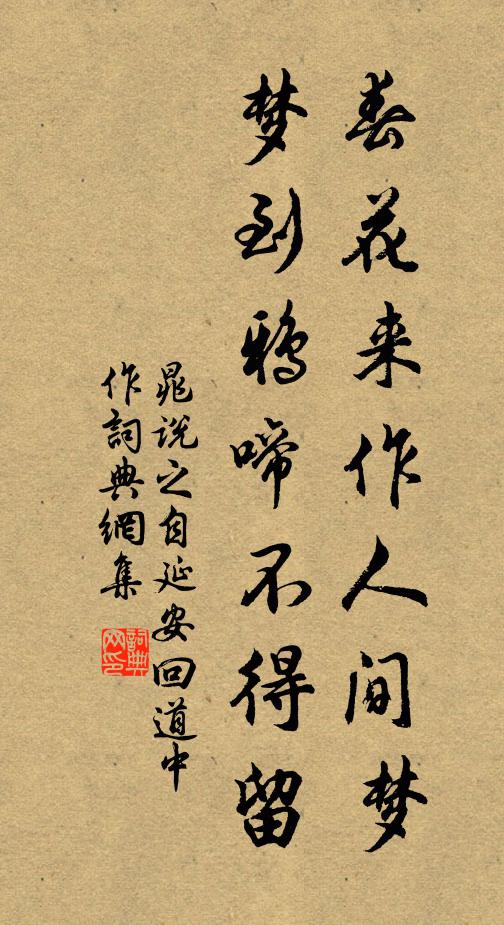 春花来作人间梦
梦到鸦啼不得留
晁说之自延安回道中
作詞典網集
詞典网印